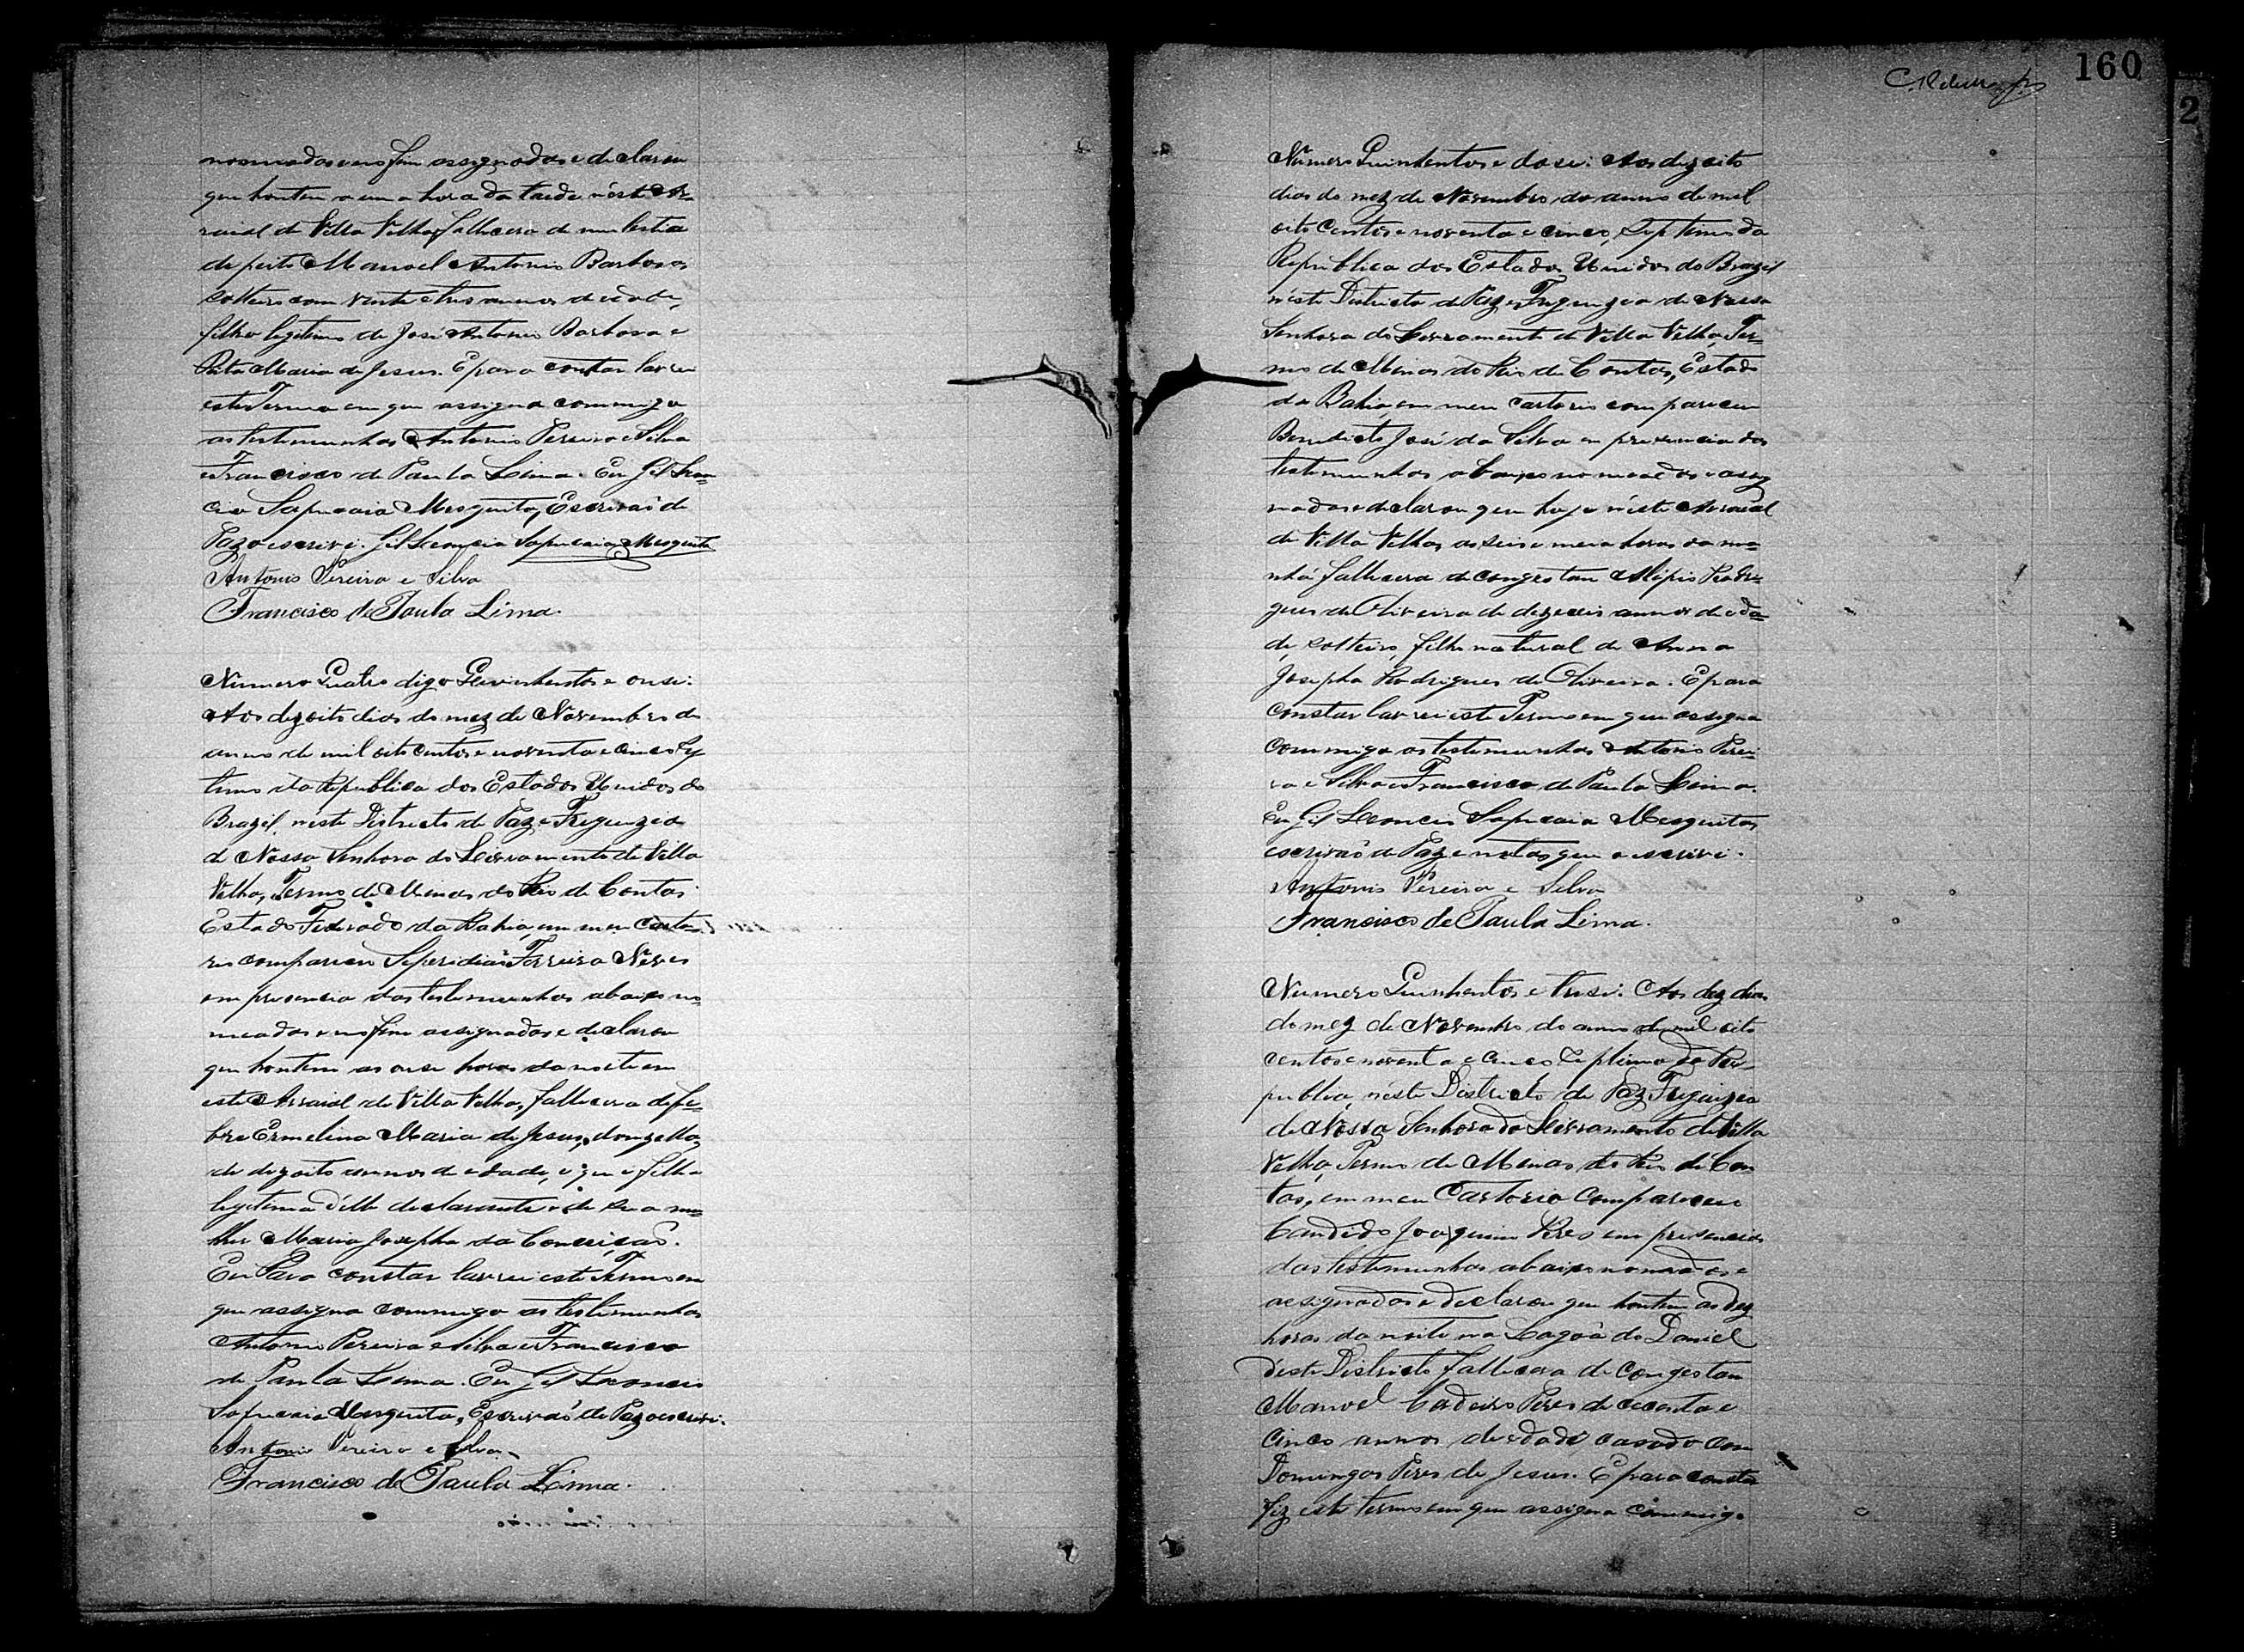 nomeados e no fim assignados e declarou
que hontem a uma hora da tarde néste Ar=
raial de Villa Velha, fallecera de molestia
de peito Manoel Antonio Barbosa,
solteiro com vinte e tres annos de idade,
filho legitimo de José Antonio Barbosa e
Rita Maria de Jesus. E para constar lavrei
este Termo em que assigna commigo
as testemunhas Antonio Pereira e Silva
e Francisco de Paula Lima. Eu Gil Leon=
cio Sapucaia Mesquita, Escrivaõ de
Paz o escrivi. Gil Leoncio Sapucaia Mesquita
Antonio Pereira e Silva
Francisco de Paula Lima.
Numero Quatro digo Quinhentos e onse.
Aos dezoito dias do mez de Novembro do
anno de mil oito centos e noventa e cinco Sep
timo da Republica dos Estados Unidos do
Brazil, néste Districto de Paz e Freguezia
de Nossa Senhora do Livramento de Villa
Velha, Termo de Minas do Rio de Contas
Estado Federado da Bahia, em meu Carto
rio compareceu Ferreira Neves
em presencia das testemunhas abaixo no=
meadas e no fim assignados e declarou
que hontem as onse horas da noite em
este Arraial de Villa Velha, fallecera de fe=
bre Ermelina Maria de Jesus, donzella,
de dezoito annos de edade, e que é filha
legitima d'elle declarante e de sua mu=
lher Maria Josepha da Conceiçaõ.
Eu Para constar lavrei este Termo em
que assigna commigo as testemunhas
Antonio Pereira e Silva e Francisco
de Paula Lima. Eu Gil Leoncio
Sapucaia Mesquita, Escrivaõ de Paz o escrivi.
Antonio Pereira e Silva
Francisco de Paula Lima.
160
2
Número Quinhentos e dose: Aos dezoito
dias do mez de Novembro do anno de mil
oito centos e noventa e cinco, Septimo da
Republica dos Estados Unidos do Brazil
néste Districto de Paz e Freguezia de Nossa
Senhora do Livramento de Villa Velha, Ter=
mo de Minas do Rio de Contas, Estado
da Bahia, em meu cartorio compareceu
Benedicto José da Silva em presencia das
testemunhas abaixo nomeados e assig
nados e declarou que hoje néste Arraial
de Villa Velha, as seis e meia horas da ma=
nhã fallecera de congestam Rodri=
gues de Oliveira de dezeseis annos de eda=
de, solteiro, filho natural de Anna
Josepha Rodrigues de Oliveira. E para
constar lavrei este Termo em que assigna
commigo as testemunhas Antonio Perei=
ra e Silva e Francisco de Paula Lima.
Eu Gil Leoncio Sapucaia Mesquita,
escrivaõ de Paz e notas que o escrivi.
Antonio Pereira e Silva
Francisco de Paula Lima.
Numero Quinhentos e trese: Aos dez dias
do mez de Novembro do anno de mil oito
centos e noventa e cinco Septimo da Re=
publica, néste Districto de Paz Freguizia
de Nossa Senhora do Livramento de Villa
Velha, Termo de Minas do Rio de Con
tas, em meu Cartorio compareceu
Candido Joaquim Pires em presencia
das testemunhas abaixo nomeados e
assignados e declarou que hontem as dez
horas da noite na Lagoa do Daniel
deste Districto fallecera de congestam
Manoel Cordeiro Pires de cecenta e
cinco annos de edade casado com
Domingas Pires de Jesus. E para constar
fiz este termo em que assigna commigo